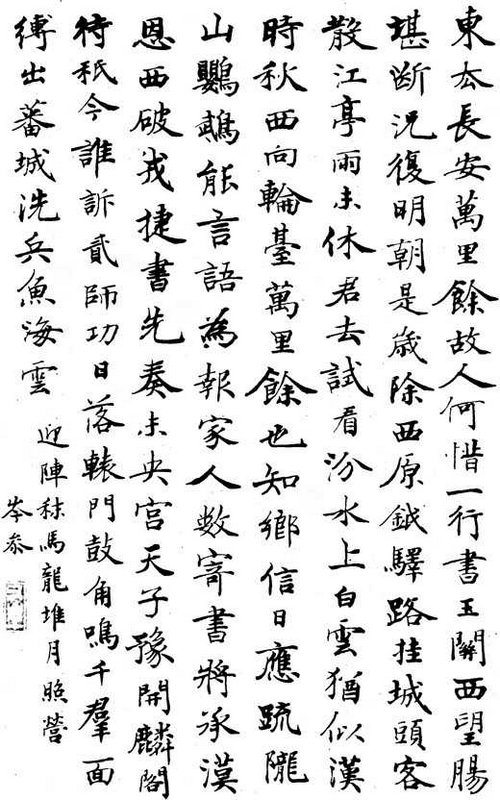 東去長安萬里餘故人何惜一行書玉關西望腸
堪断況復明朝是歲除西原鉞驛路挂城頭客
散江亭雨未休君去試看汾水上白雲猶似漢
時秋西向輪臺萬里餘也知鄉信日應疏隴
山鸚鵡能言語為報家人數寄書將承漠
恩西破戎捷書先奏未央宮天子豫開麟閣
待秖今誰訴貳師功日落轅門鼓角鳴千羣面
縛出蕃城洗兵魚海雲
迎陣秣馬龍堆月照營
岑参